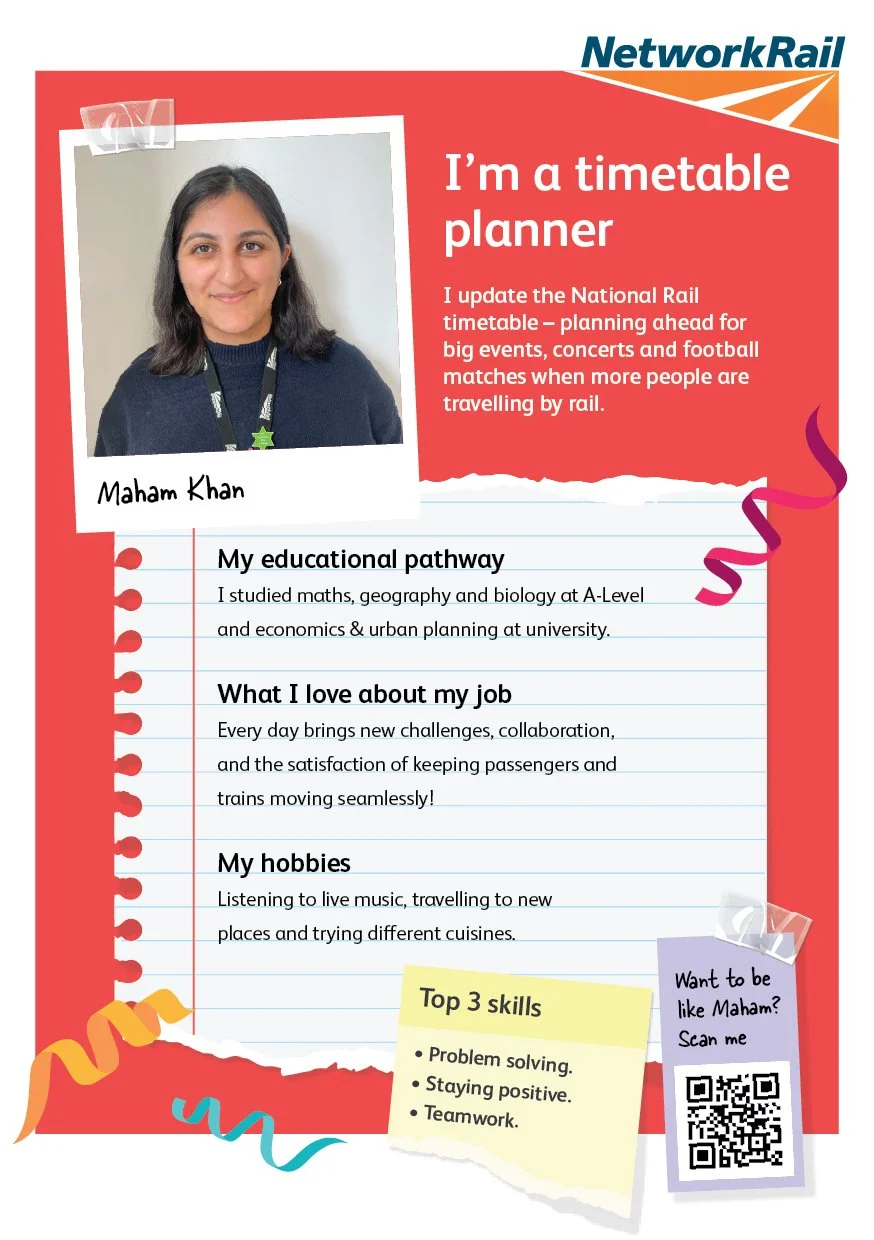 NetworkRail
I'm a timetable
planner
I update the National Rail
timetable – planning ahead for
big events, concerts and football
matches when more people are
travelling by rail.
Maham Khan
My educational pathway
I studied maths, geography and biology at A-Level
and economics & urban planning at university.
What I love about my job
Every day brings new challenges, collaboration,
and the satisfaction of keeping passengers and
trains moving seamlessly!
My hobbies
Listening to live music, travelling to new
places and trying different cuisines.
Top 3 skills
• Problem solving.
• Staying positive.
• Teamwork.
Want to be
like Maham?
Scan me